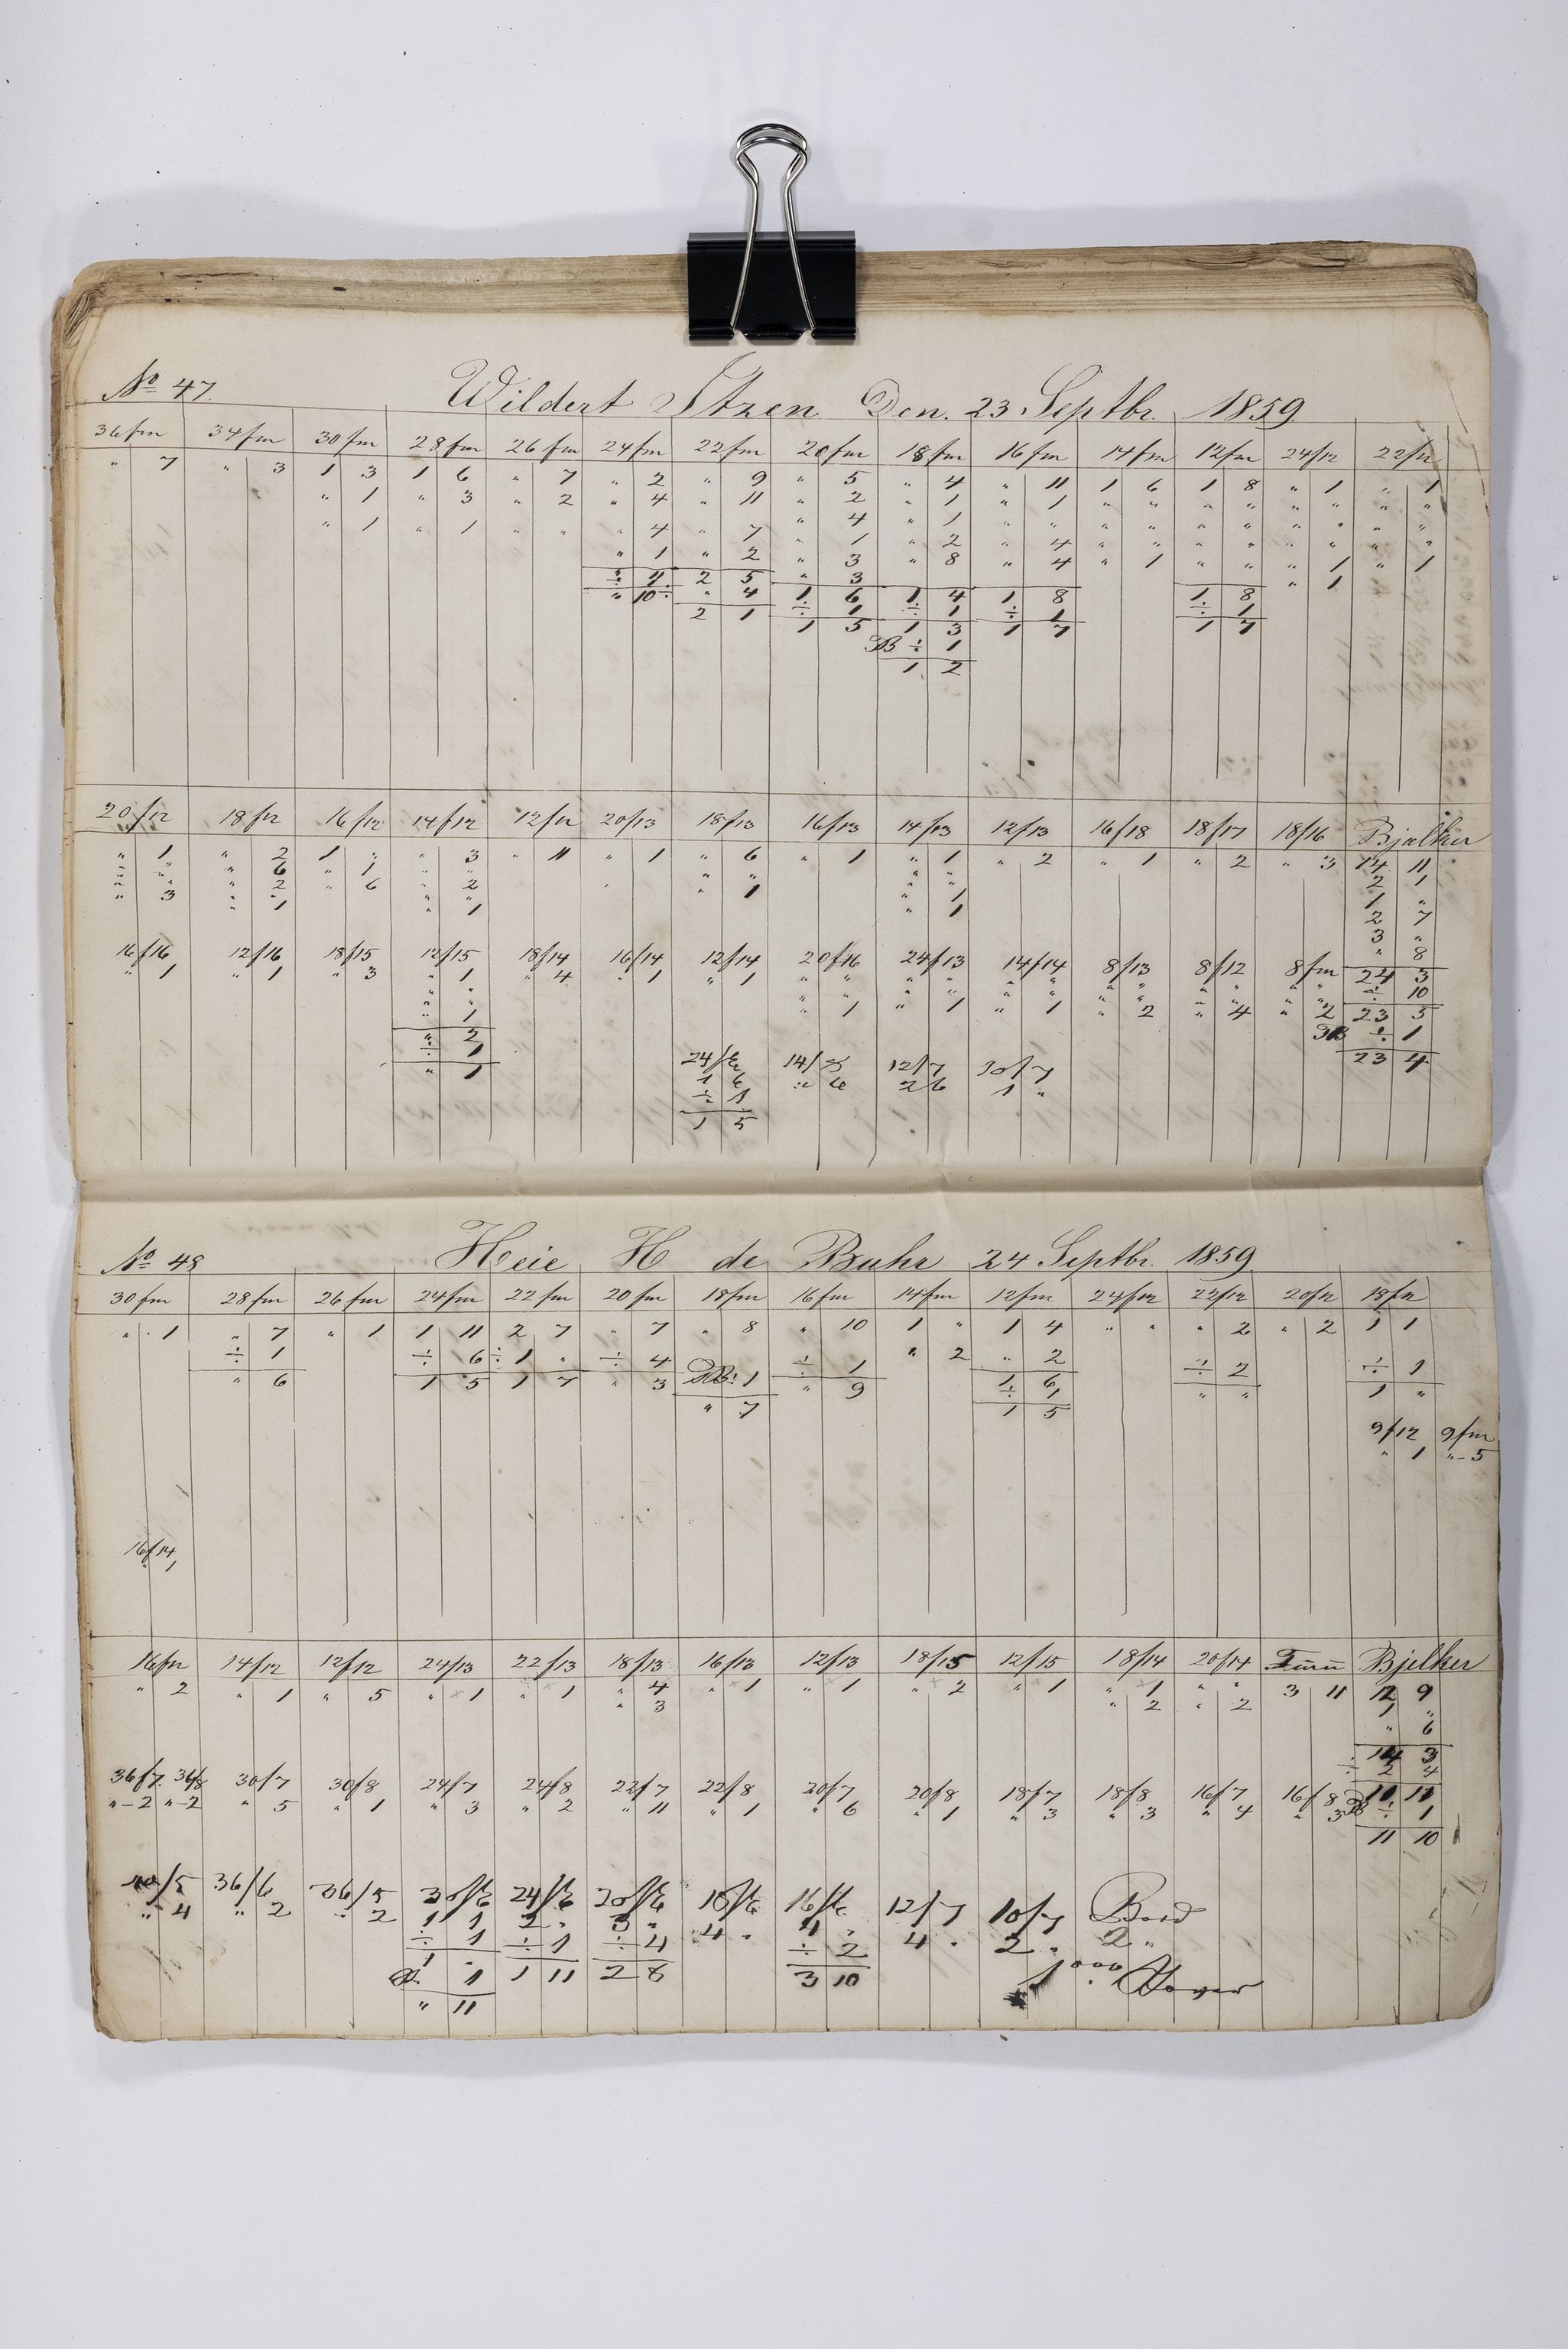 No 47. Wildert Itzen Den. 23 Septbr. 1859.
36fm 34fm 30fm 28fm 26fm 24fm 22fm 20fm 18fm 16fm 14fm 12fm 24/12 22/12
" 7 " 3 1 3 1 6 " 7 " 2 " 9 " 5 " 4 " 11 1 6 1 8 " 1 " 1
" 1 " 3 " 2 " 4 " 11 " 2 " 1 " 1 " " " " " " " "
" 1 " 1 " " " 4 " 7 " 4 " 1 " " " " " " " " " "
" 1 " 2 " 4 " " " " " " " "
" 1 " 2 " 3 " 8 " 4 " 1 " " " 1 " 1
÷ 11 2 5 " 3 " 1
" 10 ÷ " 4 1 6 1 4 1 8 1 8
2 1 ÷ 1 ÷ 1 ÷ 1 ÷ 1
1 5 1 3 1 7 1 7
÷ 1
1 2
20/12 18/12 16/12 14/12 12/12 20/13 18/13 16/13 14/13 12/13 16/18 18/17 18/16 Bjelker
" 1 " 2 1 " " 3 " 11 " 1 " 6 " 1 " 1 " 2 " 1 " 2 " 3 14 11
" " " 6 " 1 " " " " 2 1
" " " 2 " 6 " 2 " 1 " 1 1 "
" 3 " 1 " 1 " 1 2 7
3 "
" 8
16/16 12/16 18/15 12/15 18/14 16/14 12/14 20/16 24/13 14/14 8/13 8/12 8fm 24 3
" 1 " 1 " 3 " 1 " 4 " 1 " 1 " " " " " " " " " " " " ÷ 10
" 1 " 1 " 1 " 1 " 2 " 4 " 2 23 5
" 2 ÷ 1
÷ 1 23 4
" 1
24/6 14/7 12/7 10/7
1 6 " 6 2 6 1 "
÷ 1
1 5
No 48 Heie H de Buhr 24 Septbr. 1859
30fm 28fm 26fm 24fm 22fm 20fm 18fm 16fm 14fm 12fm 24/12 22/12 20/12 18/12
" 1 " 7 " 1 1 11 2 7 " 7 " 8 " 10 1 " 1 4 " " " 2 " 2 1 1
÷ 1 ÷ 6 ÷ 1 " ÷ 4 1 ÷ 1 " 2 " 2 ÷ 2 ÷ 1
" 6 1 5 1 7 " 3 " 7 " 9 1 6 " " 1 "
÷ 1
1 5
9/12 9fm
" 1 "-5
16/14
" 1
16/12 14/12 12/12 24/13 22/13 18/13 16/13 12/13 18/15 12/15 18/14 20/14 Furu Bjelker
" 2 " 1 " 5 " 1 " 1 " 4 " 1 " 1 " 2 " 1 " 1 " " 3 11 12 9
" 3 " 2 " 2 1 "
" 6
14 3
÷ 2 4
36/7 36/8 30/7 30/8 24/7 24/8 22/7 22/8 20/7 20/8 18/7 18/8 16/7 16/8 11 11
"-2 "-2 " 5 " 1 " 3 " 2 " 11 " 1 " 6 " 1 " 3 " 3 " 4 " 3 ÷ 1
11 10
40/5 36/6 36/5 30/6 24/6 20/6 18/6 16/6 12/7 10/7 Bord
" 4 " 2 " 2 1 1 2 " 3 " 4 " 4 " 4 " 2 " 2 "
÷ 1 ÷ 1 ÷ 4 ÷ 2
1 " 1 11 2 8 3 10
1 1000
" 11